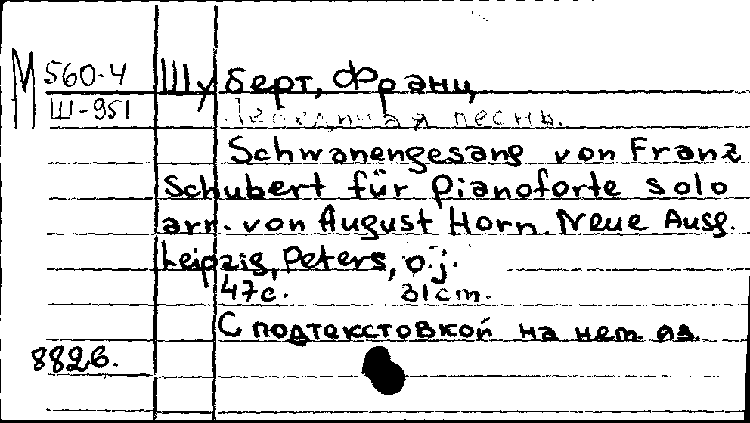 М 560-4
Ш-951
Шуберт, Франц
Лебединая песнь.
Schwanengesang von Franz
Schubert für Pianoforte solo
arr. von August Horn. Neue Ausg.
Leipzig, Peters, o.j.
47с. 31cm.
С подтекстовкой на нем. яз.
8826.